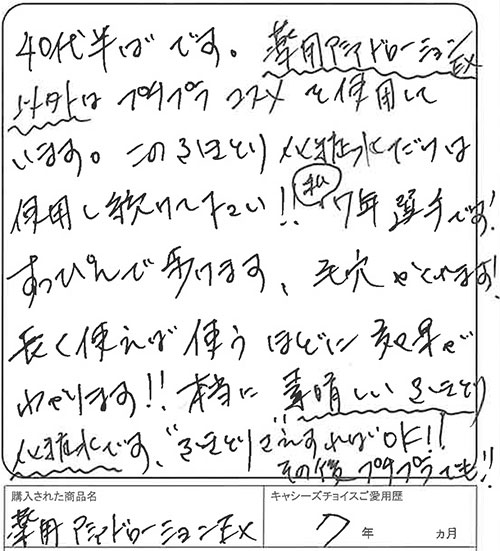 40代半ばです。薬用アシアドローションEX
以外はプチプラコスメを使用して
います。このふきとり化粧水だけは
使用し続けて下さい!!私7年選手です!
すっぴんで歩けます、毛穴やくれます!
長く使えば使うほどに効果が
わかります!!本当に素晴しいふきとり
化粧水です、"ふきとりさえすればOK!!
その後プチプラでも!!
購入された商品名
キャシーズチョイスご愛用歴
薬用アシアドローションEX
7年 ヵ月